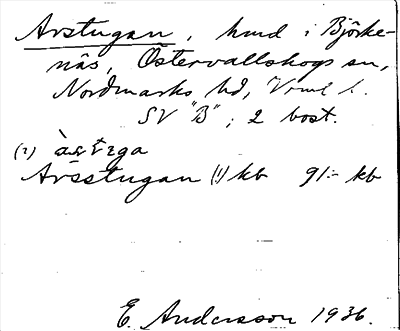 Arstugan, hmd i Björke-
näs, Östervallskogs sn,
Nordmarks hd, Vrml l.
SV "B"; 2 bost.
(2)
Arsstugan (1) kb 91:- kb
E. Andersson 1936.